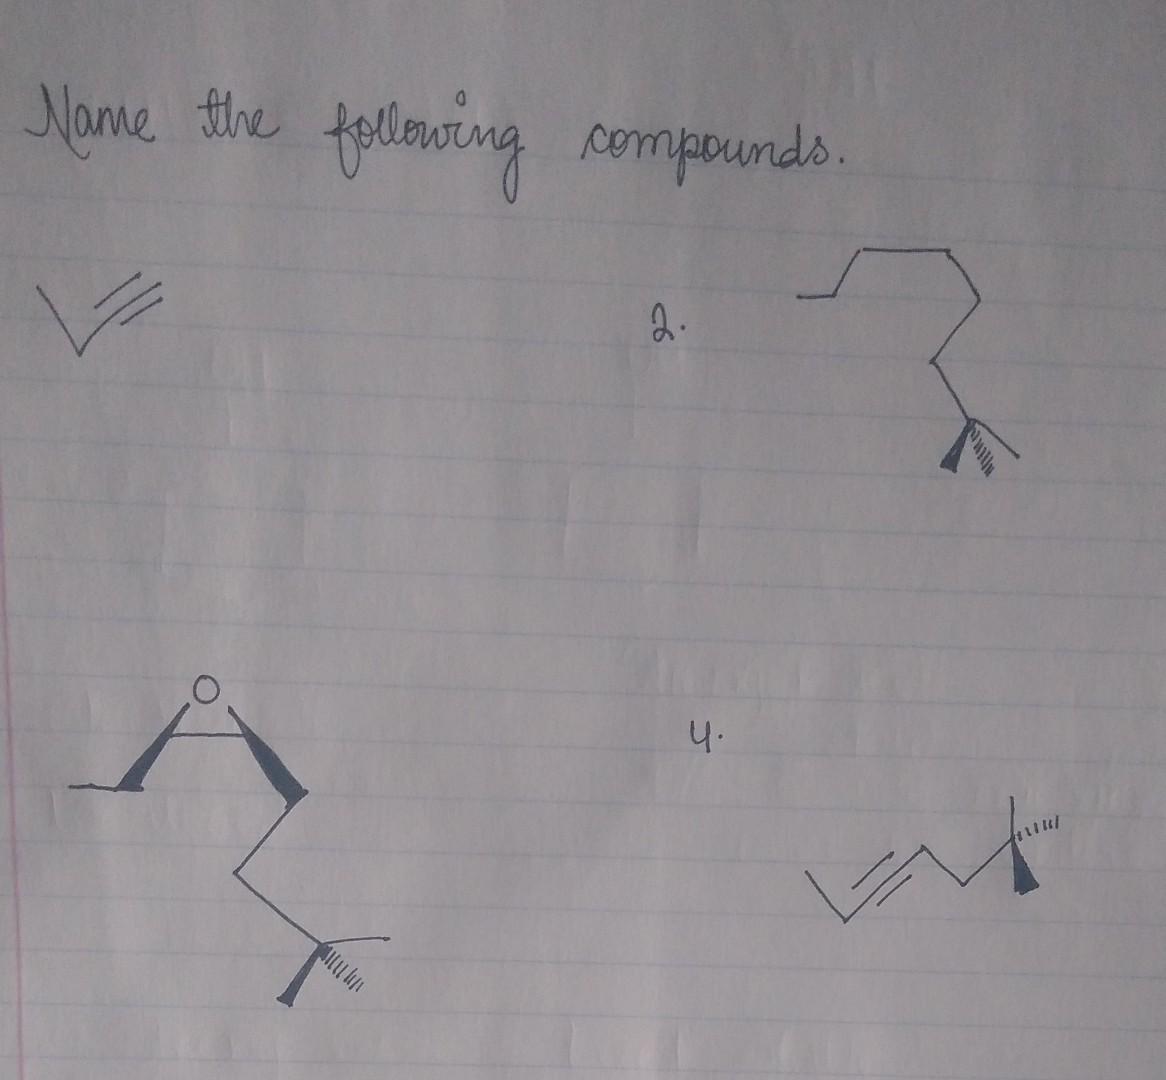 Name the following compounds.
2.
O
4.